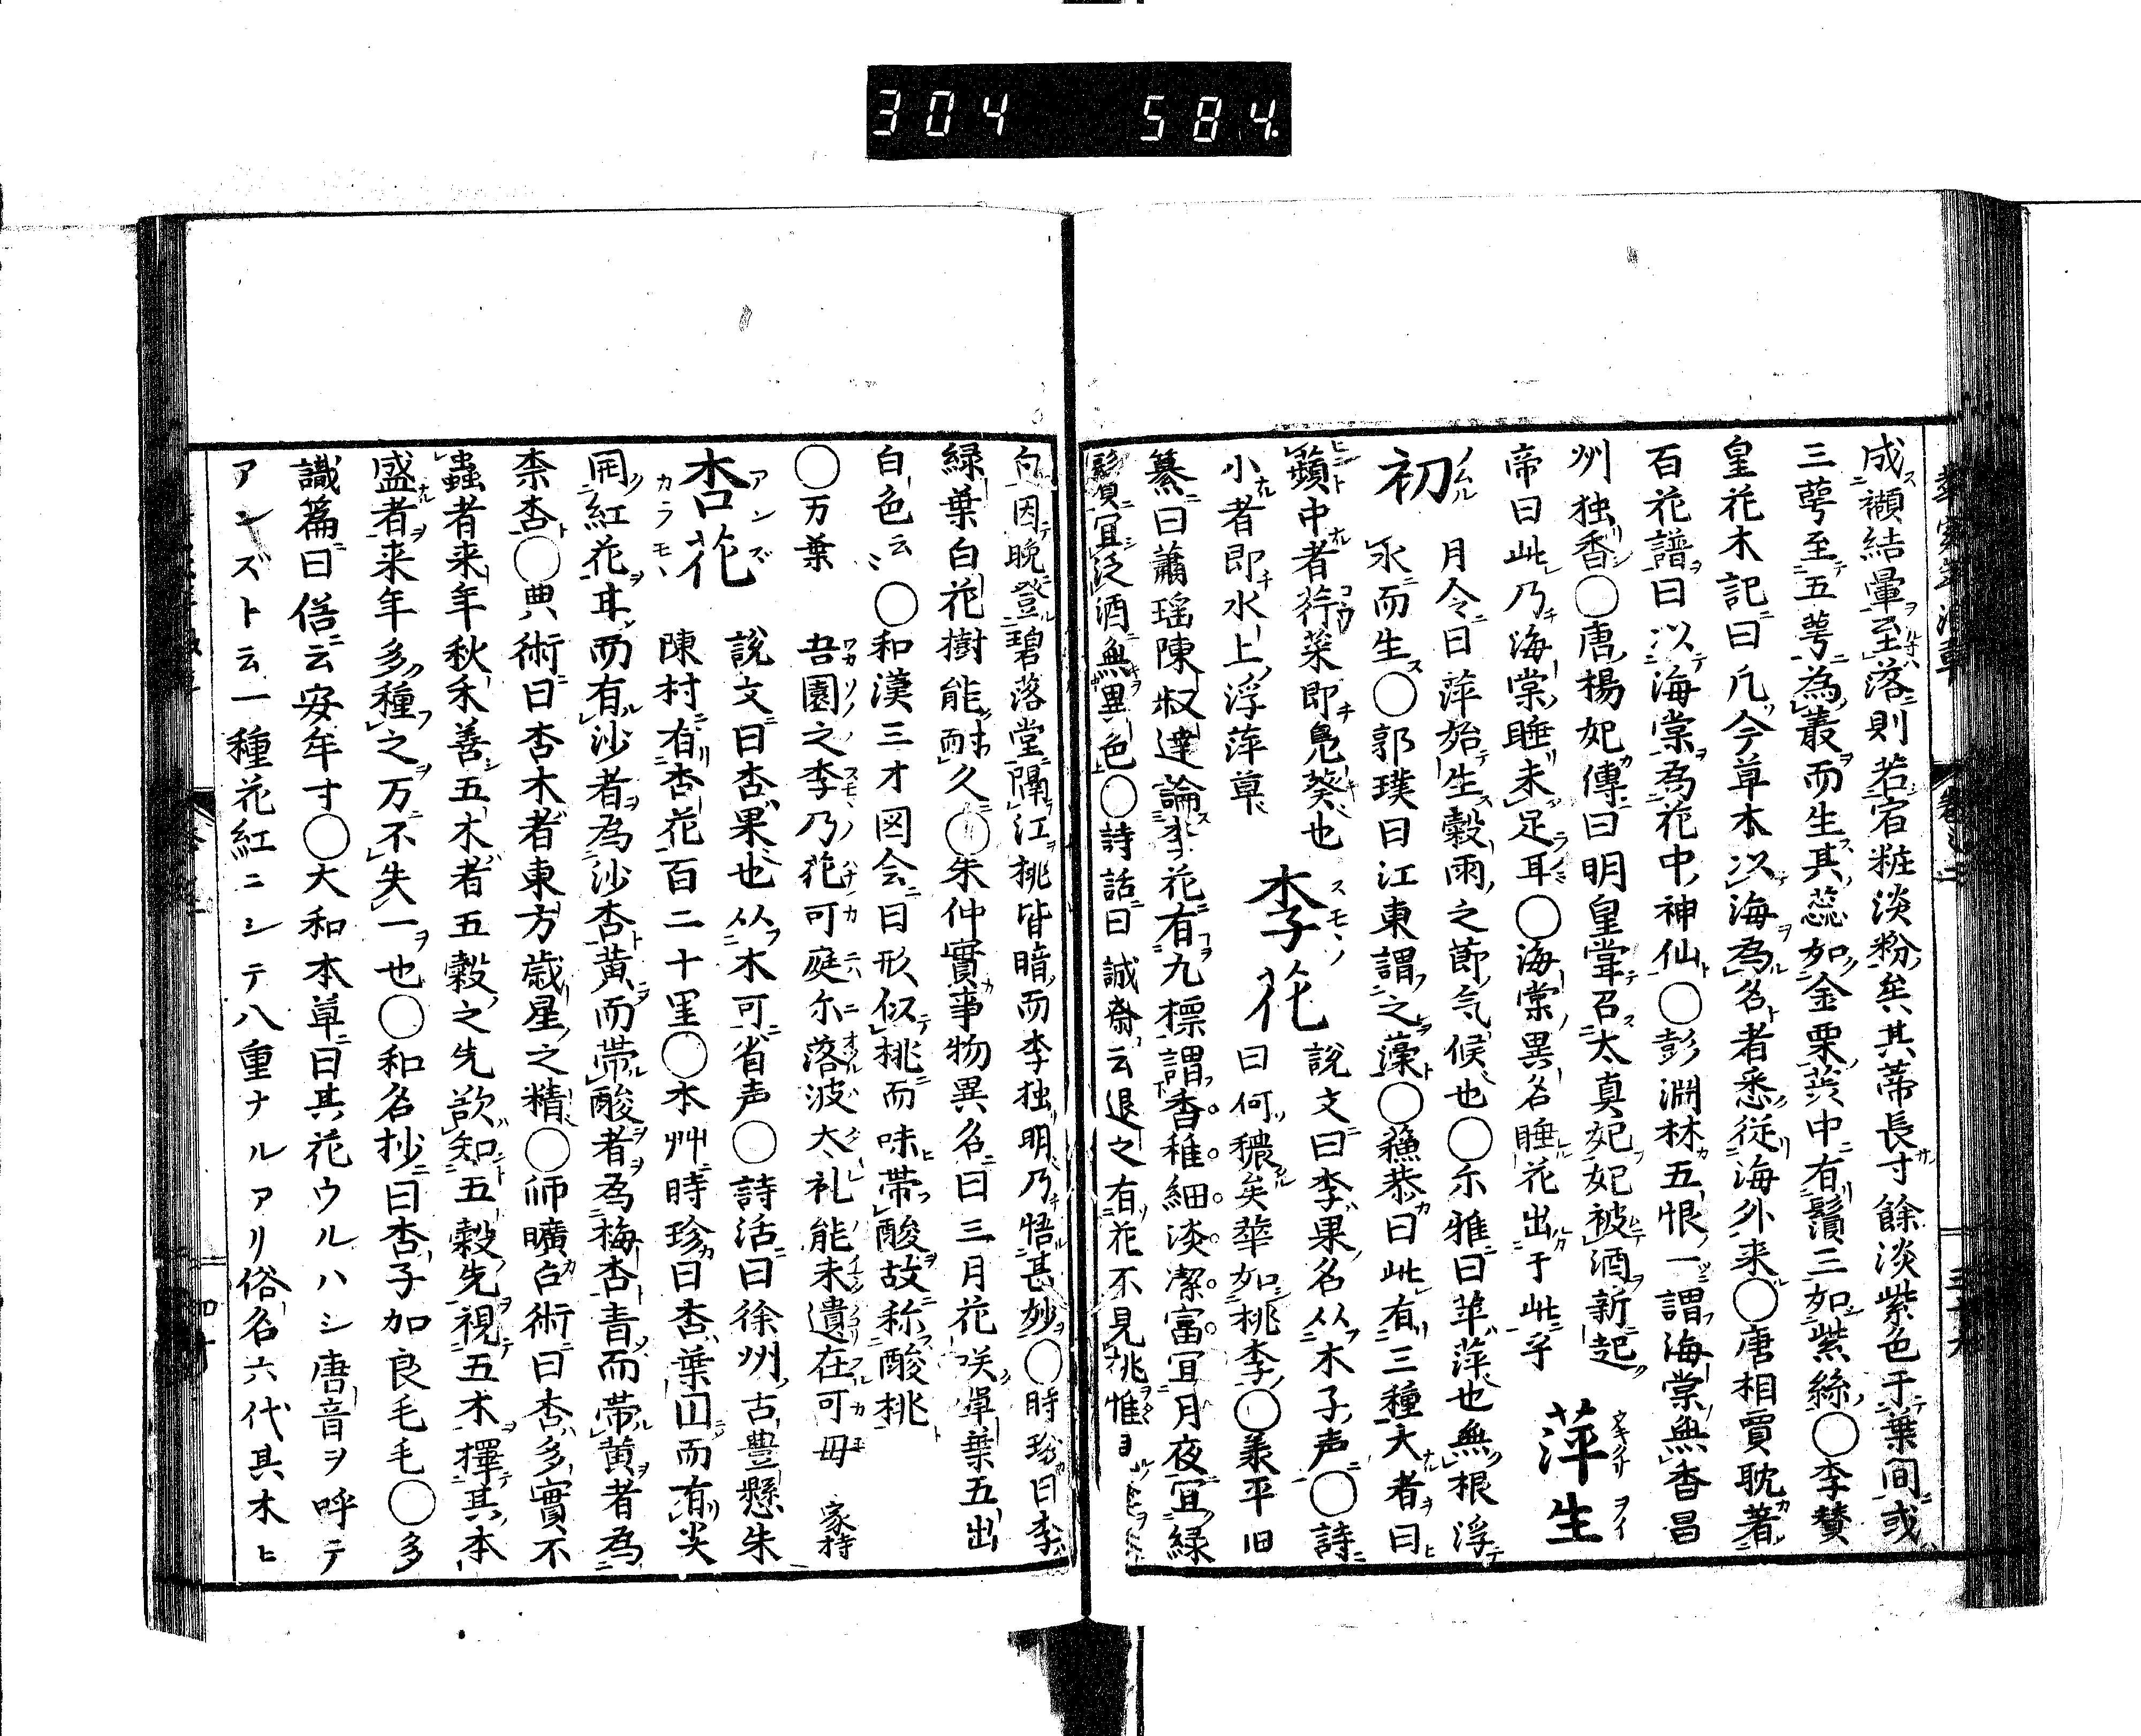 304 584.
成纈結暈至落則若宿粧淡粉矣其蒂長寸餘淡紫色于葉間或
三萼至五萼為叢而生其蕊如金粟蕊中有鬚三如紫絲○李賛
皇花木記曰凡今草木以海為名者悉従海外来○唐相賈耽著
百花譜曰以海棠為花中神仙○彭淵材五恨一謂海棠無香昌
州独香○唐楊妃傳曰明皇甞召太真妃妃被酒新起
帝曰此乃海棠睡未足耳○海棠異名睡花出于此乎 萍生
初 月令曰萍始生穀雨之節気候也○尓雅曰苹萍也無根浮
水而生○郭璞曰江東謂之藻○蘓恭曰此有三種大者曰
蘋中者荇菜即鳬葵也
小者即水上浮萍草 李花 説文曰李果名从木子声○詩
曰何穠矣華如桃李○羕平旧
纂曰蕭瑶陳叔達論李花有九標謂香稚細淡潔富宜月夜宜緑
鬢宜泛酒無異色○詩話曰誠齋云退之有花不見桃惟
句因晩登碧落堂隔江桃皆暗而李独明乃悟甚妙○時珍曰李
緑葉白花樹能耐久○朱仲實事物異名曰三月花咲単葉五出
白色云〻○和漢三才図会曰形似桃而味帯酸故称酸桃
○万葉 吾園之李乃花可庭尓落波太礼能未遺在可母 家持
杏花 説文曰杏果也从木可省声○詩活曰徐州古豊懸朱
陳村有杏花百二十里○本艸時珍曰杏葉圓而有尖
開紅花耳而有沙者為沙杏黄而帯酸者為梅杏青而帯黄者為
柰杏○典術曰杏木者東方歳星之精○師曠占術曰杏多實不
蟲者来年秋禾善五木者五穀之先欲知五穀先視五木擇其本
盛者来年多種之万不失一也○和名抄曰杏子加良毛毛○多
識篇曰俗云安牟寸○大和本草曰其花ウルハシ唐音ヲ呼テ
アンズト云一種花紅ニシテ八重ナルアリ俗名六代其木ヒ